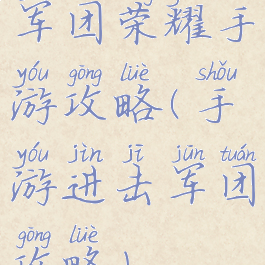 军团荣耀手
yóu gōng lüè shǒu
游攻略(手
yóu jìn jī jūn tuán
游进击军团
gōng lüè
攻略)